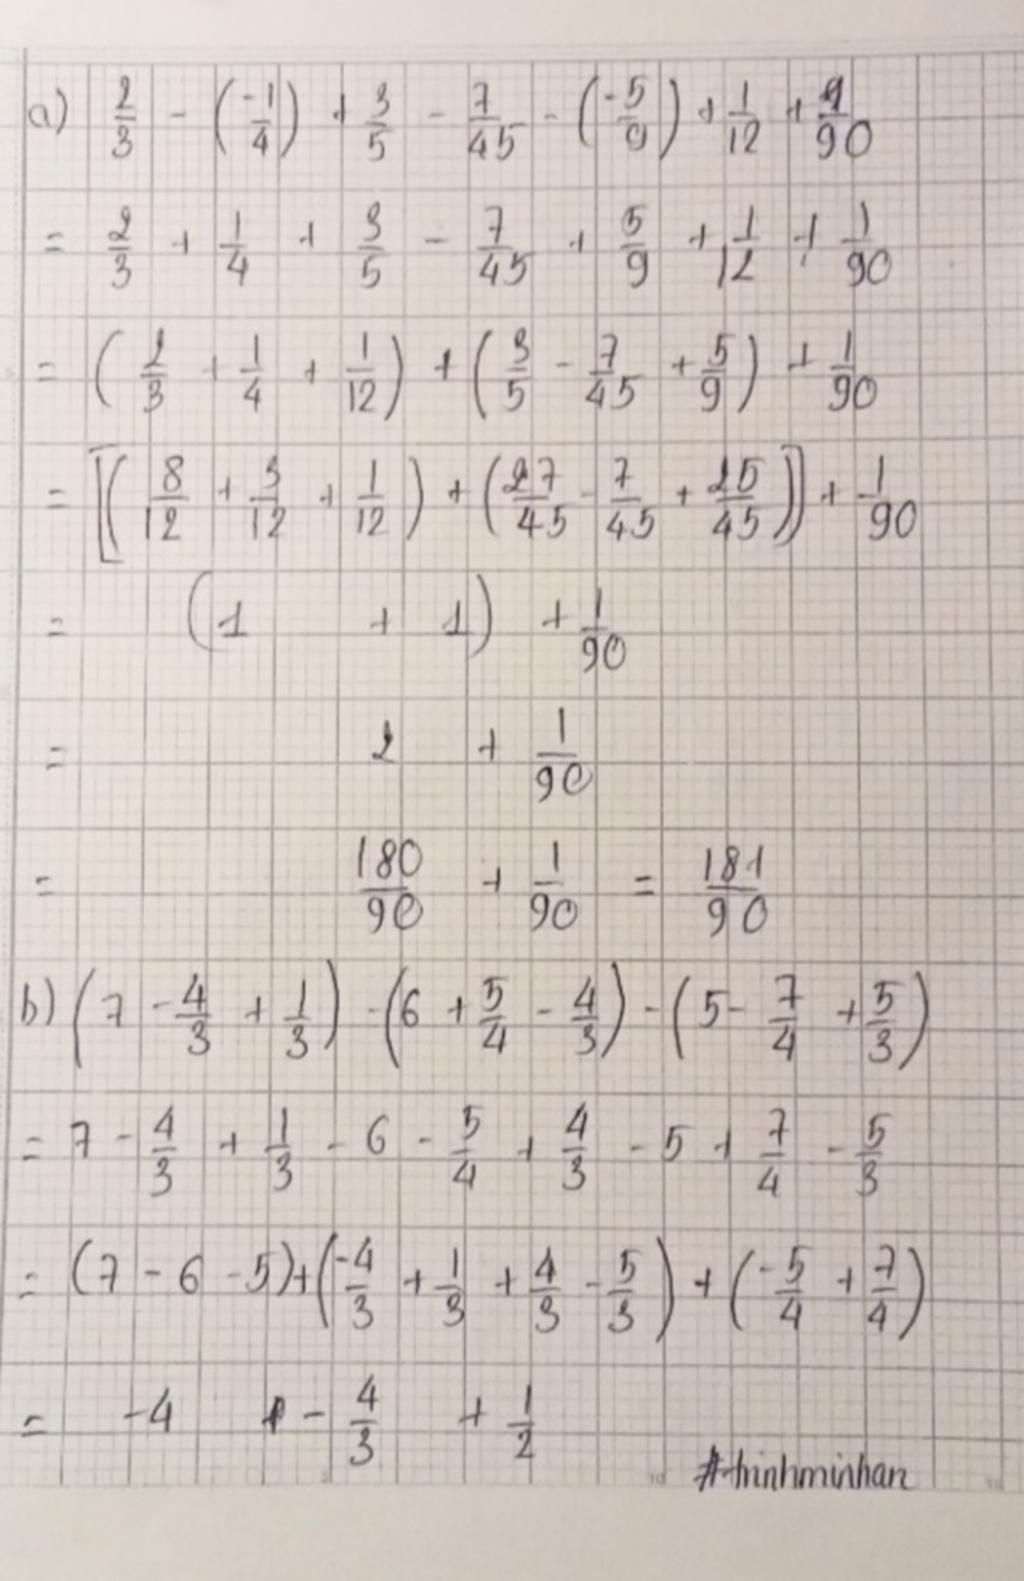 a) 2/3 - (-1/4) + 3/5 - 7/45 - (-5/9) + 1/12 + 1/90
= 2/3 + 1/4 + 3/5 - 7/45 + 5/9 + 1/12 + 1/90
= (2/3 + 1/4 + 1/12) + (3/5 - 7/45 + 5/9) + 1/90
= [(8/12 + 3/12 + 1/12) + (27/45 - 7/45 + 25/45)] + 1/90
= (1 + 1) + 1/90
= 2 + 1/90
= 180/90 + 1/90 = 181/90
b) (7 - 4/3 + 1/3) - (6 + 5/4 - 4/3) - (5 - 7/4 + 5/3)
= 7 - 4/3 + 1/3 - 6 - 5/4 + 4/3 - 5 + 7/4 - 5/3
= (7 - 6 - 5) + (-4/3 + 1/3 + 4/3 - 5/3) + (-5/4 + 7/4)
= -4 - 4/3 + 1/2
#trinhminhan